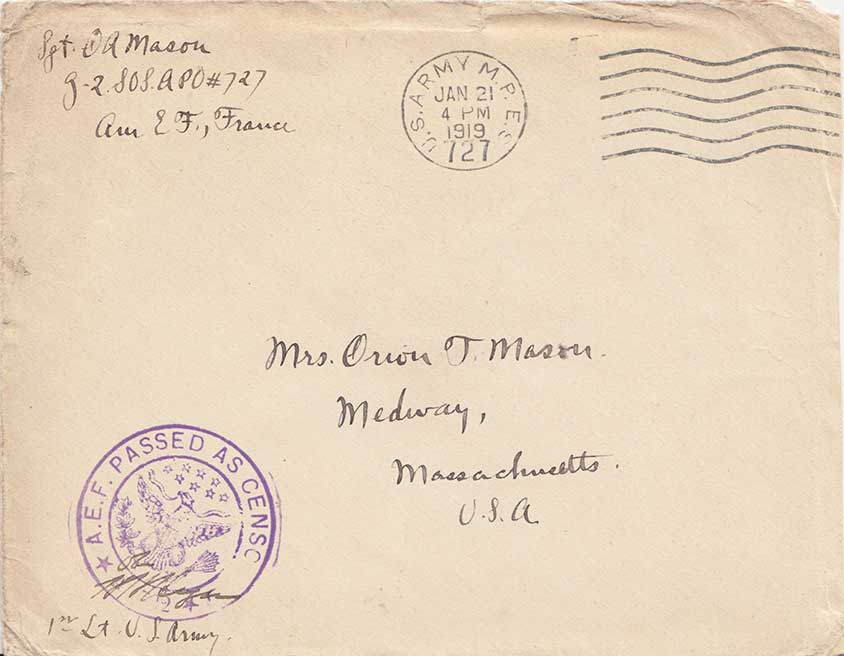 Sgt. O A Mason
G-2. SOS. APO #727
Am E F., France
U.S. ARMY M.P.E.S.
JAN 21
4 PM
1919
727
Mrs. Orion T. Mason.
Medway,
Massachusetts.
U.S.A
A.E.F. PASSED AS CENSO
1st Lt. U.S. Army.